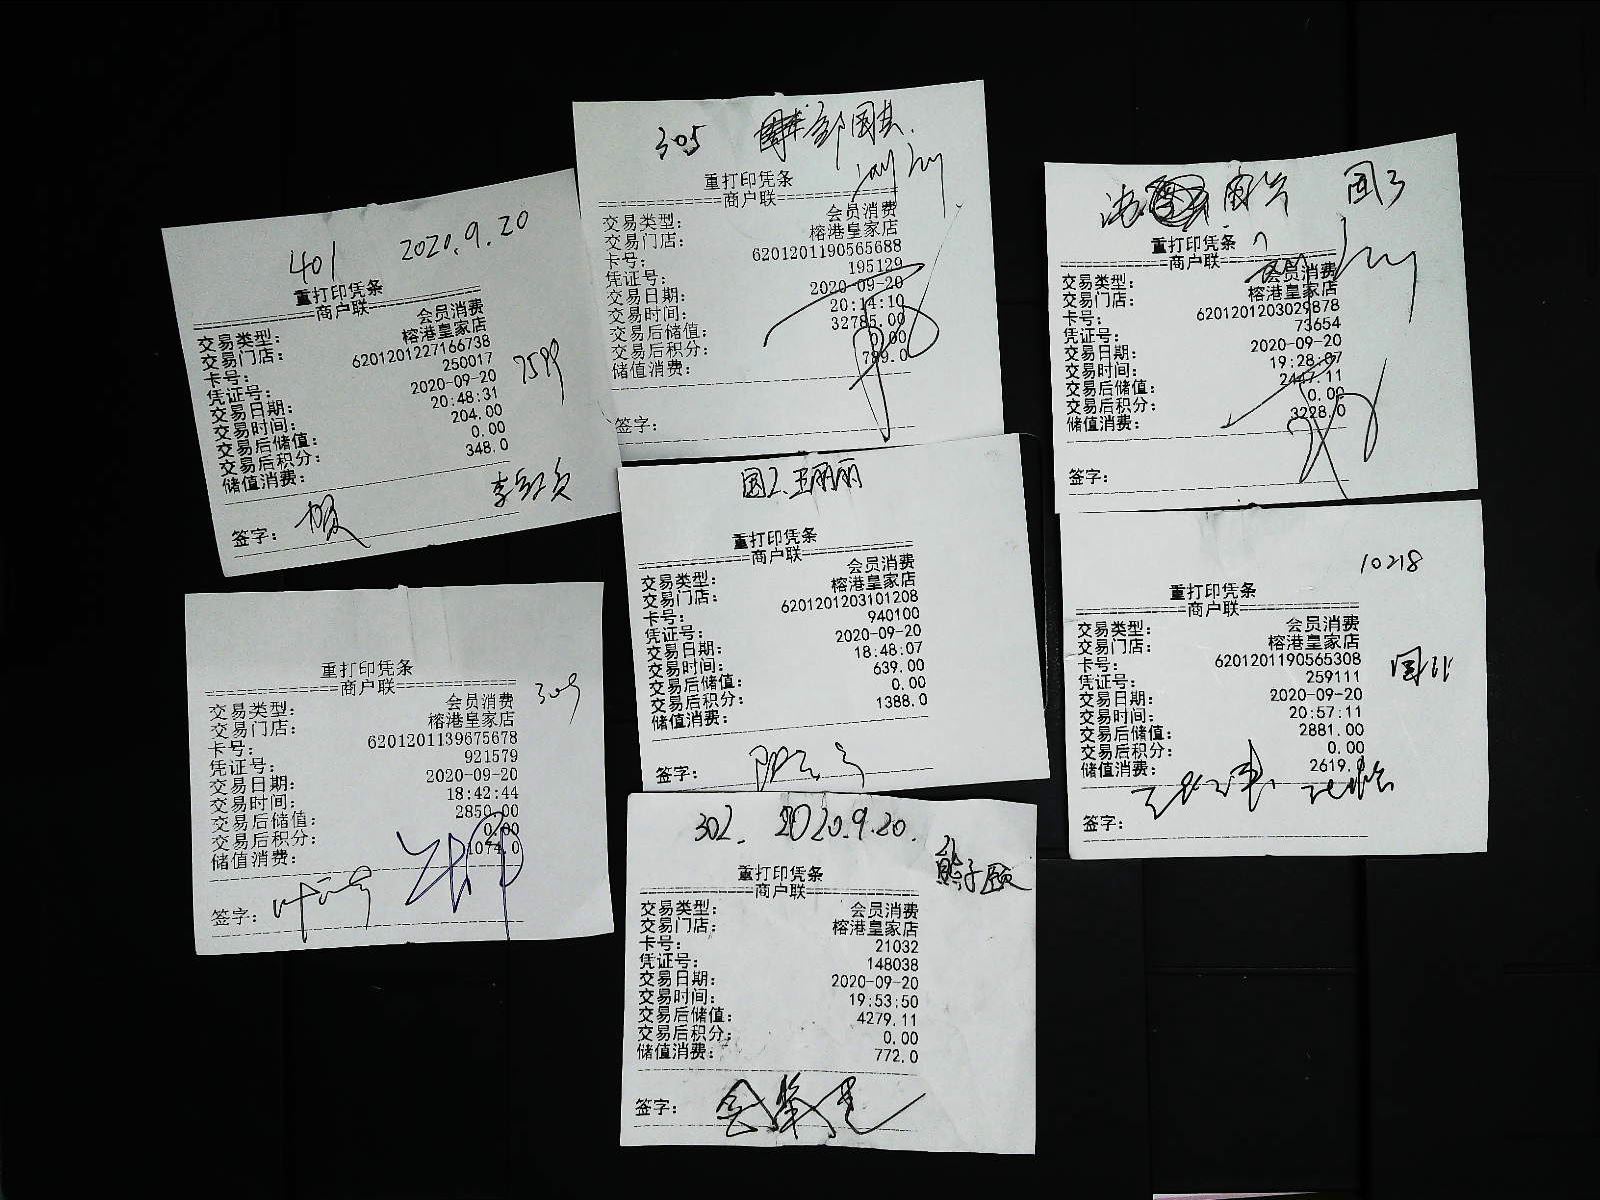 401 2020.9.20
重打印凭条
商户联
交易类型: 会员消费
交易门店: 榕港皇家店
卡号: 6201201227166738
凭证号: 250017
交易日期: 2020-09-20
交易时间: 20:48:31
交易后储值: 204.00
交易后积分: 0.00
储值消费: 348.0
7599
签字:
305 国共
重打印凭条
商户联
交易类型: 会员消费
交易门店: 榕港皇家店
卡号: 6201201190565688
凭证号: 195129
交易日期: 2020-09-20
交易时间: 20:14:10
交易后储值: 32785.00
交易后积分: 0.00
储值消费: 789.0
签字:
国3
重打印凭条
商户联
交易类型: 会员消费
交易门店: 榕港皇家店
卡号: 6201201203029878
凭证号: 73654
交易日期: 2020-09-20
交易时间: 19:28:07
交易后储值: 2447.11
交易后积分: 0.00
储值消费: 3228.0
签字:
重打印凭条
商户联
交易类型: 会员消费
交易门店: 榕港皇家店
卡号: 6201201139675678
凭证号: 921579
交易日期: 2020-09-20
交易时间: 18:42:44
交易后储值: 2850.00
交易后积分: 0.00
储值消费: 1074.0
309
签字:
国2.王丽丽
重打印凭条
商户联
交易类型: 会员消费
交易门店: 榕港皇家店
卡号: 6201201203101208
凭证号: 940100
交易日期: 2020-09-20
交易时间: 18:48:07
交易后储值: 639.00
交易后积分: 0.00
储值消费: 1388.0
签字:
10218
重打印凭条
商户联
交易类型: 会员消费
交易门店: 榕港皇家店
卡号: 6201201190565308
凭证号: 259111
交易日期: 2020-09-20
交易时间: 20:57:11
交易后储值: 2881.00
交易后积分: 0.00
储值消费: 2619.0
签字:
302. 2020.9.20.
熊子颐
重打印凭条
商户联
交易类型: 会员消费
交易门店: 榕港皇家店
卡号: 21032
凭证号: 148038
交易日期: 2020-09-20
交易时间: 19:53:50
交易后储值: 4279.11
交易后积分: 0.00
储值消费: 772.0
签字: